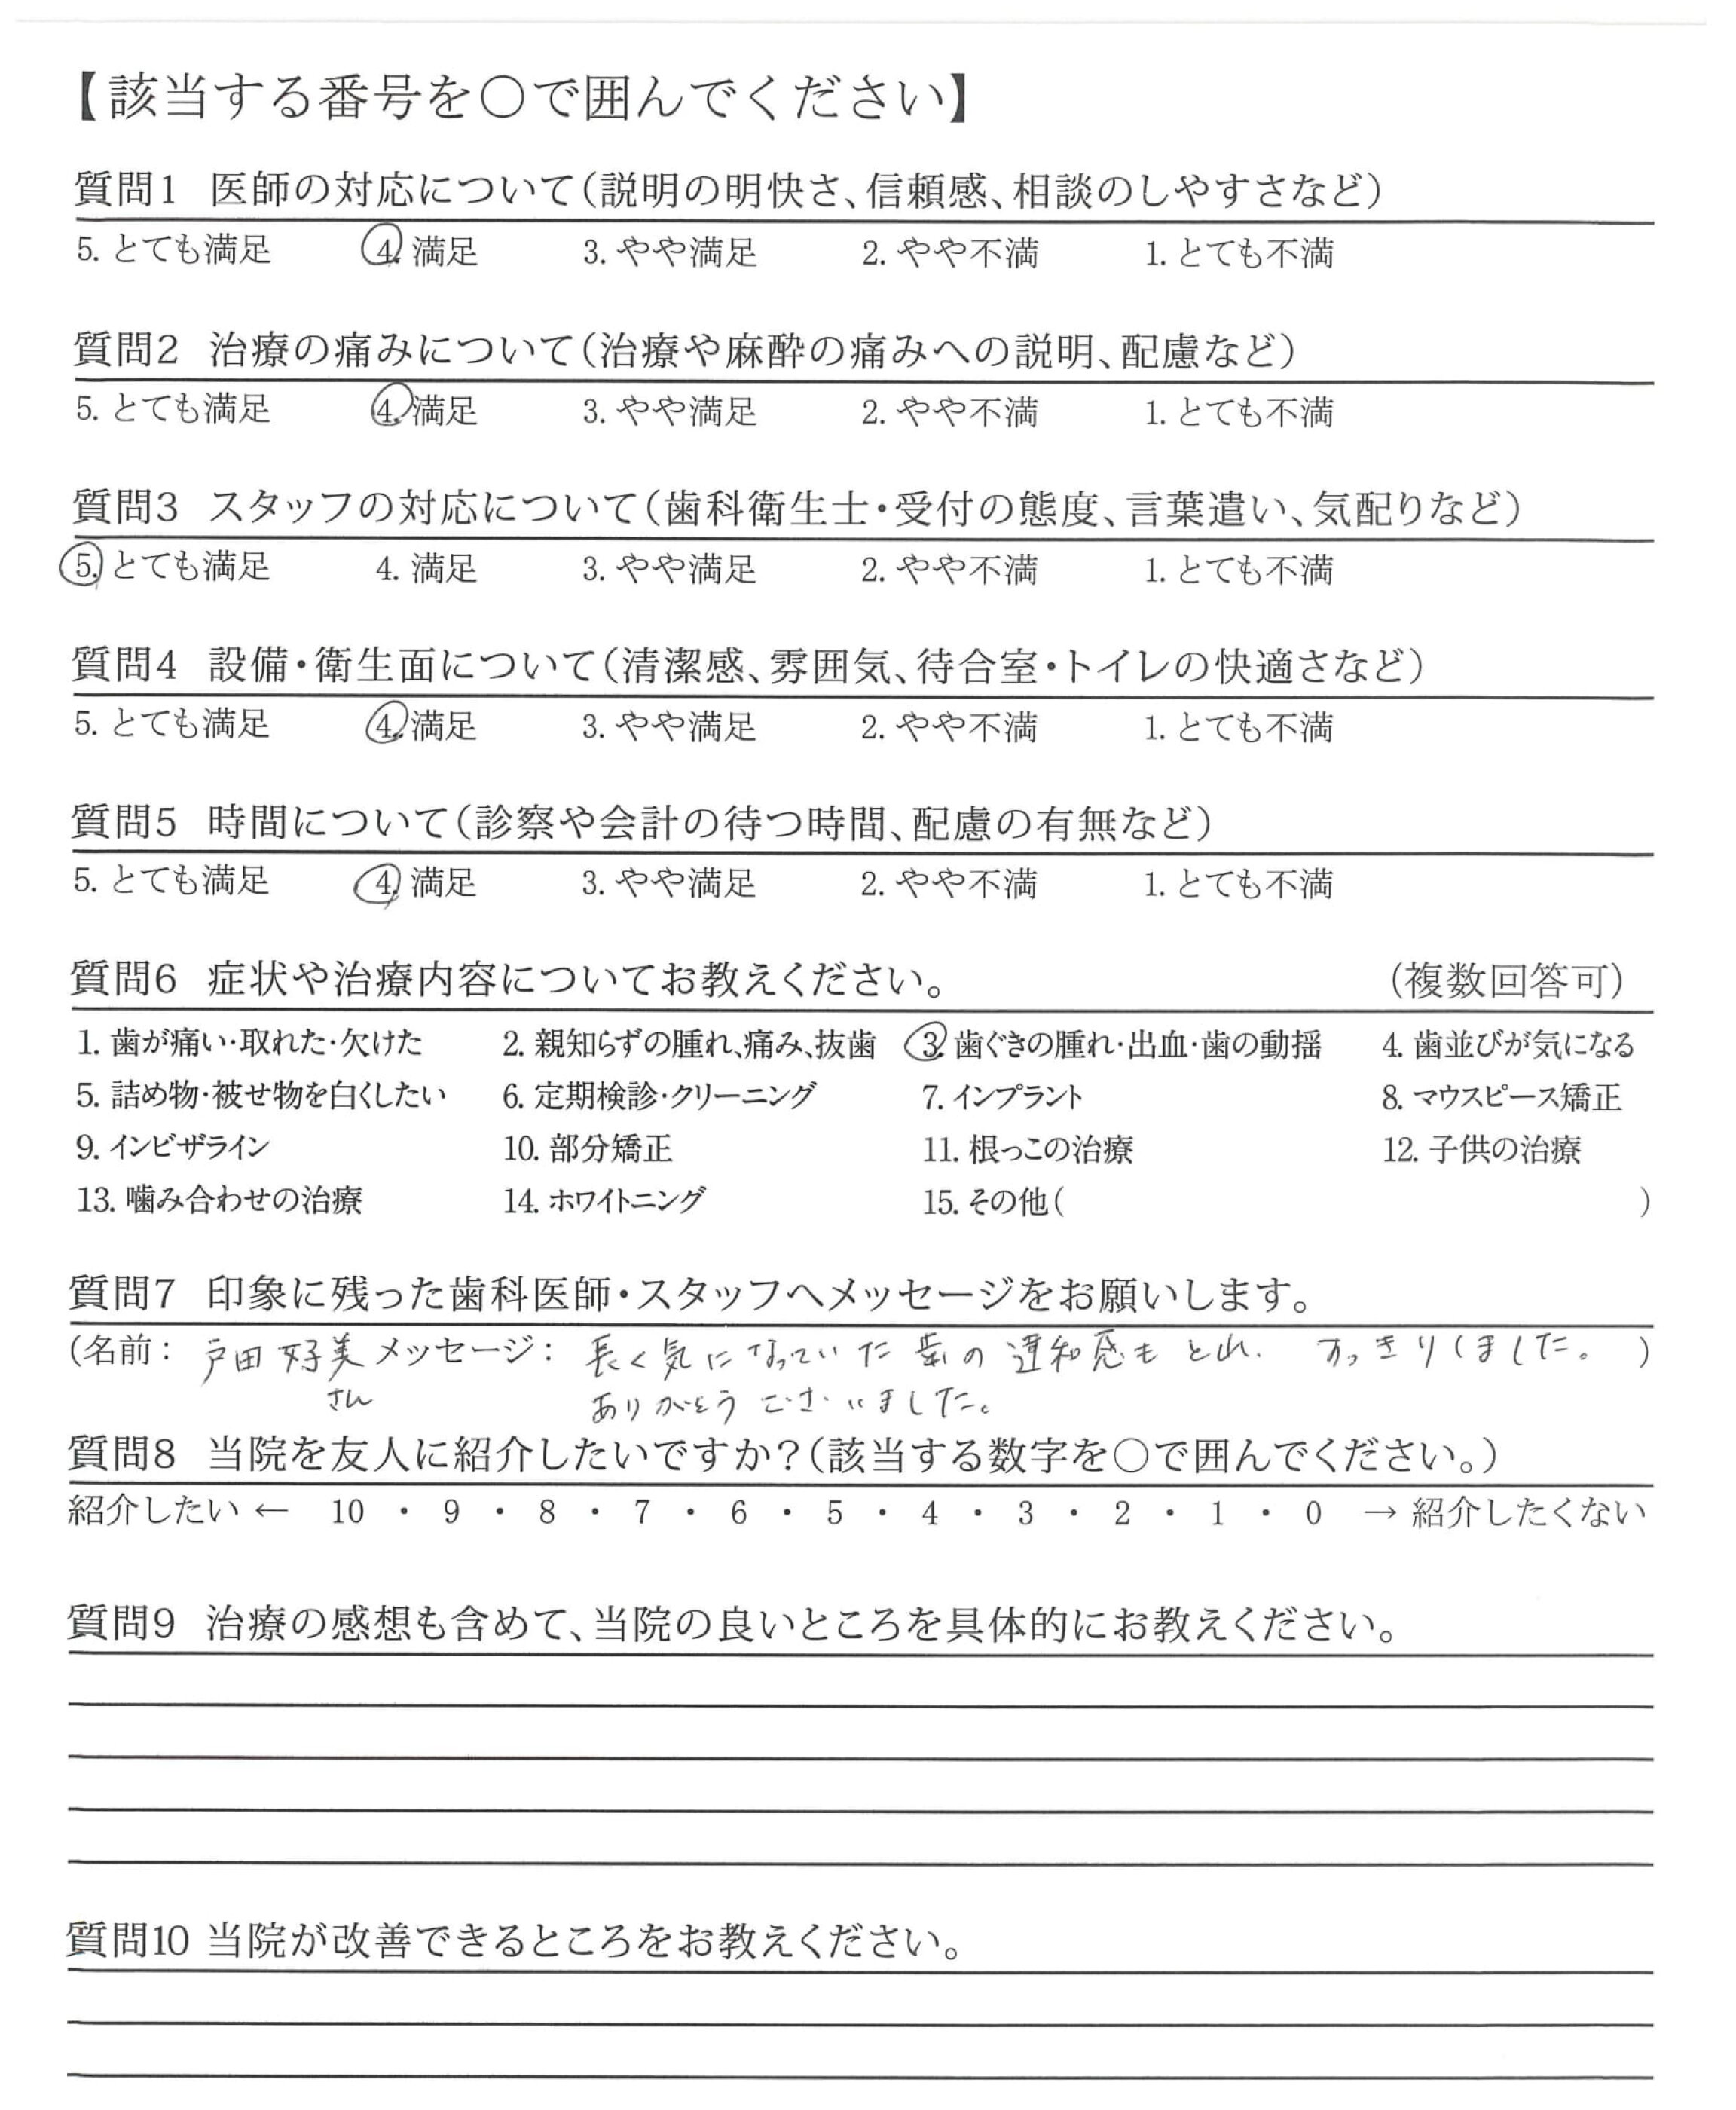 【該当する番号を○で囲んでください】
質問1 医師の対応について(説明の明快さ、信頼感、相談のしやすさなど)
5. とても満足 4. 満足 3. やや満足 2. やや不満 1. とても不満
質問2 治療の痛みについて(治療や麻酔の痛みへの説明、配慮など)
5. とても満足 4. 満足 3. やや満足 2. やや不満 1. とても不満
質問3 スタッフの対応について(歯科衛生士・受付の態度、言葉遣い、気配りなど)
5. とても満足 4. 満足 3. やや満足 2. やや不満 1. とても不満
質問4 設備・衛生面について(清潔感、雰囲気、待合室・トイレの快適さなど)
5. とても満足 4. 満足 3. やや満足 2. やや不満 1. とても不満
質問5 時間について(診察や会計の待つ時間、配慮の有無など)
5. とても満足 4. 満足 3. やや満足 2. やや不満 1. とても不満
質問6 症状や治療内容についてお教えください。 (複数回答可)
1. 歯が痛い・取れた・欠けた 2. 親知らずの腫れ、痛み、抜歯 3. 歯ぐきの腫れ・出血・歯の動揺 4. 歯並びが気になる
5. 詰め物・被せ物を白くしたい 6. 定期検診・クリーニング 7. インプラント 8. マウスピース矯正
9. インビザライン 10. 部分矯正 11. 根っこの治療 12. 子供の治療
13. 噛み合わせの治療 14. ホワイトニング 15. その他( )
質問7 印象に残った歯科医師・スタッフへメッセージをお願いします。
(名前: 戸田 好美 メッセージ: 長く気になっていた歯の違和感もとれ、すっきりしました。 )
さん ありがとうございました。
質問8 当院を友人に紹介したいですか?(該当する数字を○で囲んでください。)
紹介したい ← 10 ・ 9 ・ 8 ・ 7 ・ 6 ・ 5 ・ 4 ・ 3 ・ 2 ・ 1 ・ 0 → 紹介したくない
質問9 治療の感想も含めて、当院の良いところを具体的にお教えください。
質問10 当院が改善できるところをお教えください。